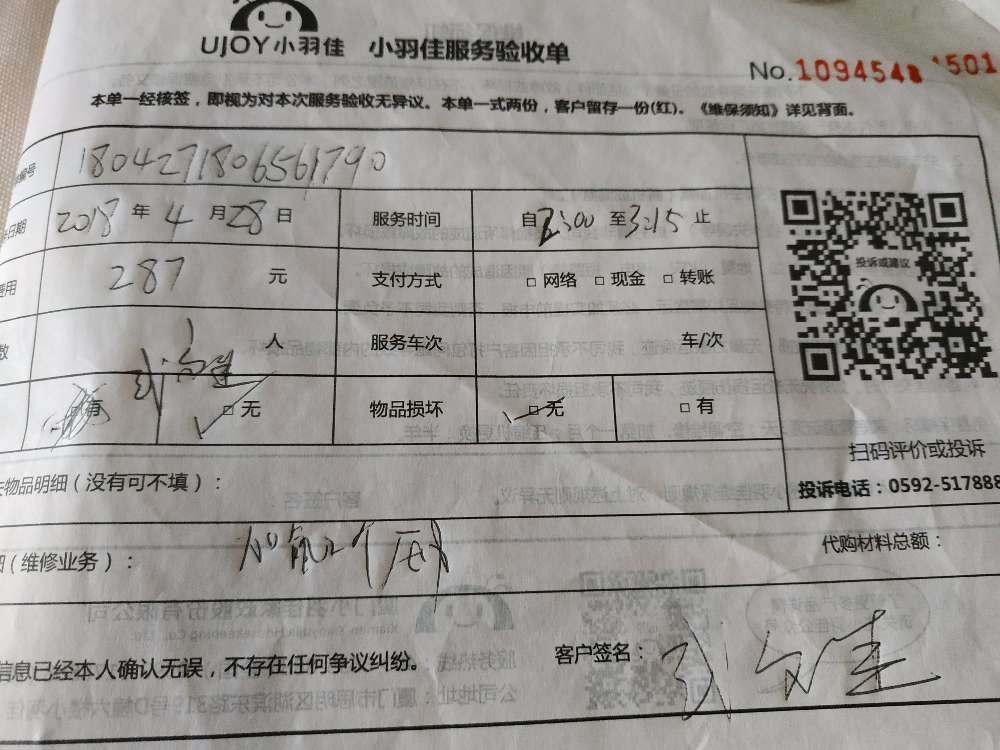 UJOY小羽佳 小羽佳服务验收单
No.1094548 1501
本单一经核签，即视为对本次服务验收无异议。本单一式两份，客户留存一份(红)。《维保须知》详见背面。
编号 1804271806561790
日期 2018 年 4 月 28 日 服务时间 自 2:00 至 3:15 止
费用 287 元 支付方式 □ 网络 □ 现金 □ 转账
数 1 人 服务车次 车/次
□ 有 □ 无 物品损坏 □ 无 □ 有
投诉或建议
扫码评价或投诉
投诉电话：0592-517888
物品明细（没有可不填）：
（维修业务）： 加氟2个
代购材料总额：
信息已经本人确认无误，不存在任何争议纠纷。 客户签名：